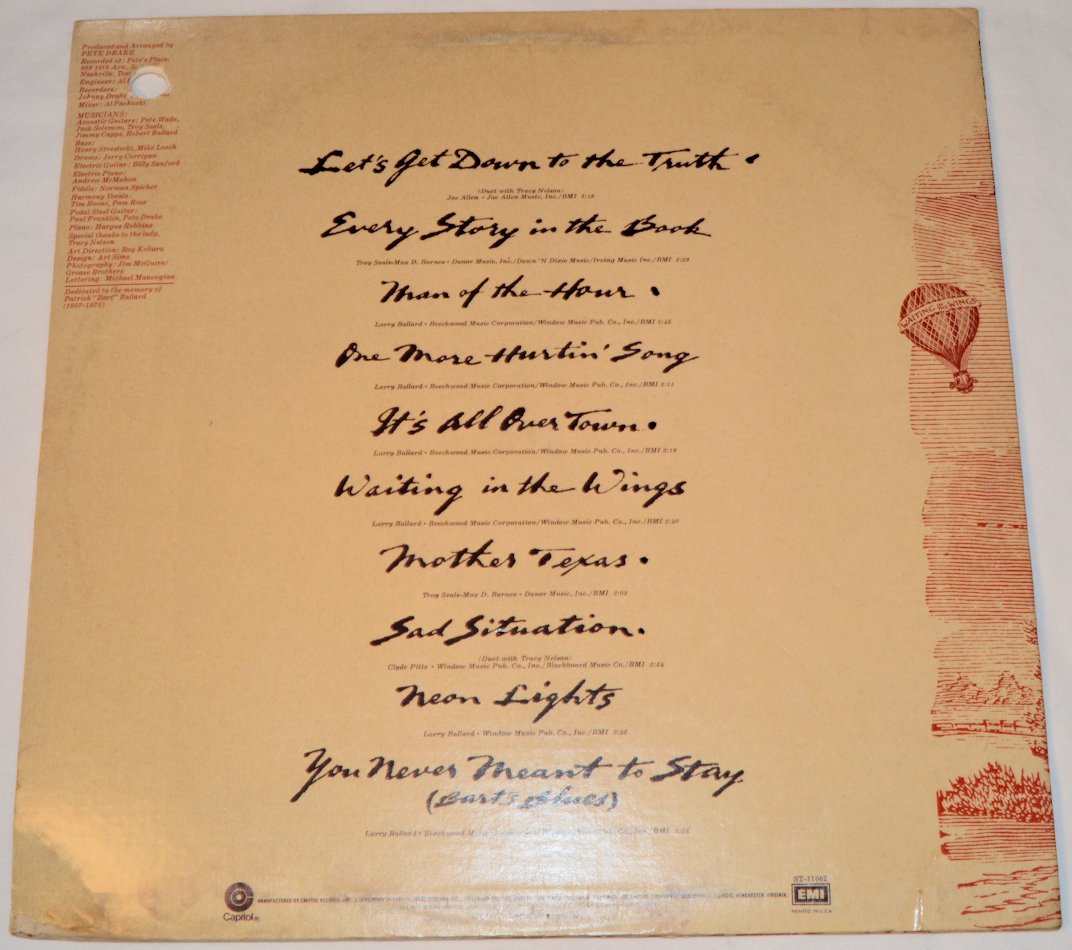 Produced and Arranged by
PETE DRAKE
Recorded at: Pete's Place,
809 18th Ave., S.
Nashville,
Engineer: Al
Recorders:
Johnny Drake
Mixer: Al Pachucki
MUSICIANS:
Acoustic Guitars: Pete Wade,
Jack Solomon, Troy Seals,
Jimmy Capps, Robert Ballard
Bass:
Henry Strzelecki, Mike Leech
Drums: Jerry Carrigan
Electric Guitar: Billy Sanford
Electric Piano:
Andrew McMahon
Fiddle: Norman Spicher
Harmony Vocals:
Tim Roone, Pam Rose
Pedal Steel Guitar:
Paul Franklin, Pete Drake
Piano: Hargus Robbins
Special thanks to the lady,
Tracy Nelson
Art Direction: Roy Kohara
Design: Art Sims
Photography: Jim McGuire/
Grease Brothers
Lettering: Michael Manoogian
Dedicated to the memory of
Patrick "Bart" Ballard
(1957-1975)
Let's Get Down to the Truth •
(Duet with Tracy Nelson)
Joe Allen • Joe Allen Music, Inc./BMI 2:18
Every Story in the Book
Troy Seals-Max D. Barnes • Danor Music, Inc./Down 'N Dixie Music/Irving Music Inc./BMI 2:59
Man of the Hour •
Larry Ballard • Beechwood Music Corporation/Window Music Pub. Co., Inc./BMI 2:48
One More Hurtin' Song
Larry Ballard • Beechwood Music Corporation/Window Music Pub. Co., Inc./BMI 2:11
It's All Over Town •
Larry Ballard • Beechwood Music Corporation/Window Music Pub. Co., Inc./BMI 2:19
Waiting in the Wings
Larry Ballard • Beechwood Music Corporation/Window Music Pub. Co., Inc./BMI 2:40
Mother Texas •
Troy Seals-Max D. Barnes • Danor Music, Inc./BMI 2:02
Sad Situation •
(Duet with Tracy Nelson)
Clyde Pitts • Window Music Pub. Co., Inc./Blackboard Music Co./BMI 2:34
Neon Lights
Larry Ballard • Window Music Pub. Co., Inc./BMI 2:42
You Never Meant to Stay
(Bart's Blues)
Larry Ballard • Beechwood Music Pub. Co., Inc./BMI
WAITING IN THE WINGS
Capitol®
MANUFACTURED BY CAPITOL RECORDS, INC.
ST-11662
EMI
PRINTED IN U.S.A.